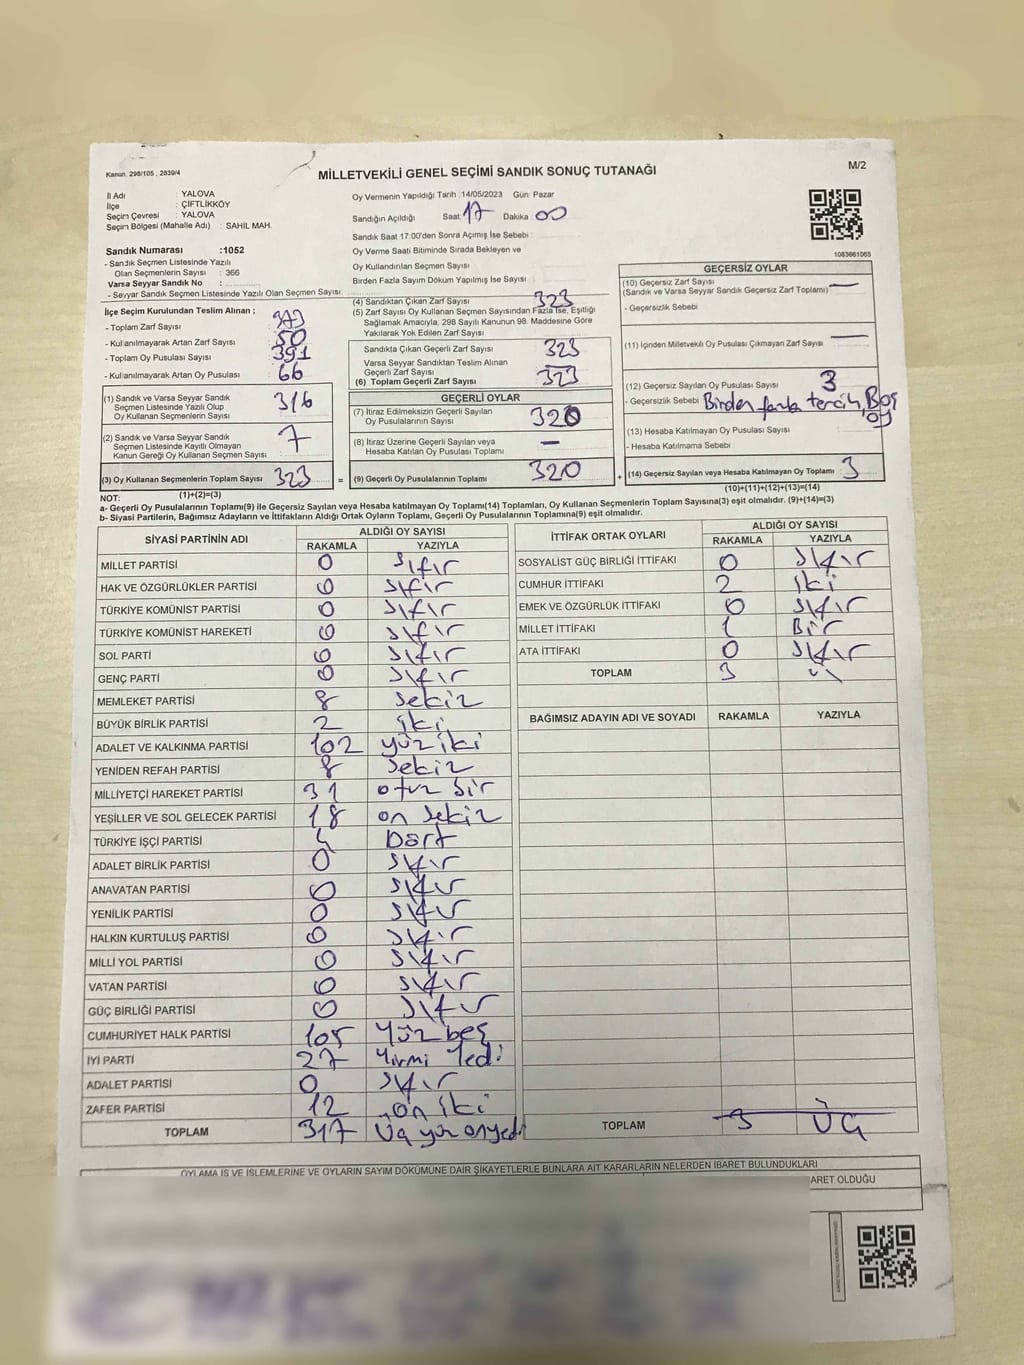 Kanun. 298/105 , 2839/4
MİLLETVEKİLİ GENEL SEÇİMİ SANDIK SONUÇ TUTANAĞI
M/2
İl Adı : YALOVA
İlçe : ÇİFTLİKKÖY
Seçim Çevresi : YALOVA
Seçim Bölgesi (Mahalle Adı) : SAHİL MAH.
Oy Vermenin Yapıldığı Tarih :14/05/2023 Gün: Pazar
Sandığın Açıldığı Saat: 17 Dakika : 00
Sandık Saat 17:00'den Sonra Açımış İse Sebebi :
Oy Verme Saati Bitiminde Sırada Bekleyen ve
Oy Kullandırılan Seçmen Sayısı
Birden Fazla Sayım Döküm Yapılmış İse Sayısı :
1083661065
Sandık Numarası :1052
- Sandık Seçmen Listesinde Yazılı
Olan Seçmenlerin Sayısı : 366
Varsa Seyyar Sandık No :
- Seyyar Sandık Seçmen Listesinde Yazılı Olan Seçmen Sayısı:
İlçe Seçim Kurulundan Teslim Alınan ;
- Toplam Zarf Sayısı : 373
- Kullanılmayarak Artan Zarf Sayısı : 50
- Toplam Oy Pusulası Sayısı : 391
- Kullanılmayarak Artan Oy Pusulası : 66
(1) Sandık ve Varsa Seyyar Sandık
Seçmen Listesinde Yazılı Olup
Oy Kullanan Seçmenlerin Sayısı 316
(2) Sandık ve Varsa Seyyar Sandık
Seçmen Listesinde Kayıtlı Olmayan
Kanun Gereği Oy Kullanan Seçmen Sayısı : 7
(3) Oy Kullanan Seçmenlerin Toplam Sayısı 323
(1)+(2)=(3)
(4) Sandıktan Çıkan Zarf Sayısı 323
(5) Zarf Sayısı Oy Kullanan Seçmen Sayısından Fazla İse, Eşitliği
Sağlamak Amacıyla, 298 Sayılı Kanunun 98. Maddesine Göre
Yakılarak Yok Edilen Zarf Sayısı :
Sandıkta Çıkan Geçerli Zarf Sayısı 323
Varsa Seyyar Sandıktan Teslim Alınan
Geçerli Zarf Sayısı
(6) Toplam Geçerli Zarf Sayısı 323
GEÇERLİ OYLAR
(7) İtiraz Edilmeksizin Geçerli Sayılan
Oy Pusulalarının Sayısı : 320
(8) İtiraz Üzerine Geçerli Sayılan veya
Hesaba Katılan Oy Pusulası Toplamı : —
= (9) Geçerli Oy Pusulalarının Toplamı 320
GEÇERSİZ OYLAR
(10) Geçersiz Zarf Sayısı —
(Sandık ve Varsa Seyyar Sandık Geçersiz Zarf Toplamı)
- Geçersizlik Sebebi :
(11) İçinden Milletvekili Oy Pusulası Çıkmayan Zarf Sayısı : —
(12) Geçersiz Sayılan Oy Pusulası Sayısı : 3
- Geçersizlik Sebebi : Birden fazla tercih, Boş
oy
(13) Hesaba Katılmayan Oy Pusulası Sayısı :
- Hesaba Katılmama Sebebi :
+ (14) Geçersiz Sayılan veya Hesaba Katılmayan Oy Toplamı : 3
(10)+(11)+(12)+(13)=(14)
NOT:
a- Geçerli Oy Pusulalarının Toplamı(9) ile Geçersiz Sayılan veya Hesaba katılmayan Oy Toplamı(14) Toplamları, Oy Kullanan Seçmenlerin Toplam Sayısına(3) eşit olmalıdır. (9)+(14)=(3)
b- Siyasi Partilerin, Bağımsız Adayların ve İttifakların Aldığı Oyların Toplamı, Geçerli Oy Pusulalarının Toplamına(9) eşit olmalıdır.
SİYASİ PARTİNİN ADI ALDIĞI OY SAYISI
RAKAMLA YAZIYLA
MİLLET PARTİSİ 0 sıfır
HAK VE ÖZGÜRLÜKLER PARTİSİ 0 sıfır
TÜRKİYE KOMÜNİST PARTİSİ 0 sıfır
TÜRKİYE KOMÜNİST HAREKETİ 0 sıfır
SOL PARTİ 0 sıfır
GENÇ PARTİ 0 sıfır
MEMLEKET PARTİSİ 8 sekiz
BÜYÜK BİRLİK PARTİSİ 2 iki
ADALET VE KALKINMA PARTİSİ 102 yüz iki
YENİDEN REFAH PARTİSİ 8 sekiz
MİLLİYETÇİ HAREKET PARTİSİ 31 otuz bir
YEŞİLLER VE SOL GELECEK PARTİSİ 18 on sekiz
TÜRKİYE İŞÇİ PARTİSİ 4 Dört
ADALET BİRLİK PARTİSİ 0 sıfır
ANAVATAN PARTİSİ 0 sıfır
YENİLİK PARTİSİ 0 sıfır
HALKIN KURTULUŞ PARTİSİ 0 sıfır
MİLLİ YOL PARTİSİ 0 sıfır
VATAN PARTİSİ 0 sıfır
GÜÇ BİRLİĞİ PARTİSİ 0 sıfır
CUMHURİYET HALK PARTİSİ 105 Yüz beş
İYİ PARTİ 27 Yirmi Yedi
ADALET PARTİSİ 0 sıfır
ZAFER PARTİSİ 12 on iki
TOPLAM 317 Üç yüz onyedi
İTTİFAK ORTAK OYLARI ALDIĞI OY SAYISI
RAKAMLA YAZIYLA
SOSYALİST GÜÇ BİRLİĞİ İTTİFAKI 0 sıfır
CUMHUR İTTİFAKI 2 iki
EMEK VE ÖZGÜRLÜK İTTİFAKI 0 sıfır
MİLLET İTTİFAKI 1 Bir
ATA İTTİFAKI 0 sıfır
TOPLAM 3
BAĞIMSIZ ADAYIN ADI VE SOYADI RAKAMLA YAZIYLA
TOPLAM 3 Üç
OYLAMA İŞ VE İŞLEMLERİNE VE OYLARIN SAYIM DÖKÜMÜNE DAİR ŞİKAYETLERLE BUNLARA AİT KARARLARIN NELERDEN İBARET BULUNDUKLARI
ARET OLDUĞU